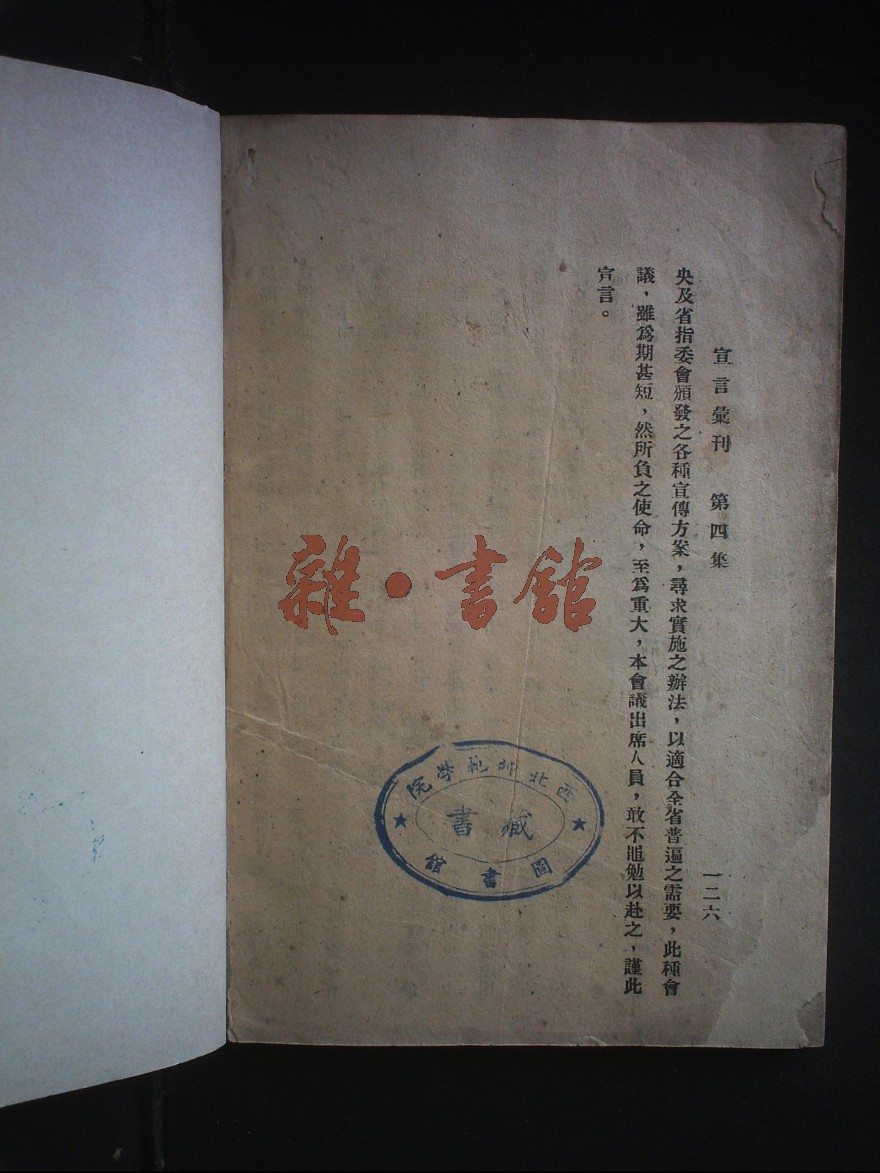 宣言彙刊　第四集
一二六
央及省指委會頒發之各種宣傳方案，尋求實施之辦法，以適合全省普遍之需要，此種會
議，雖爲期甚短，然所負之使命，至爲重大，本會議出席人員，敢不黽勉以赴之，謹此
宣言。
雜·書館
西北師範學院
藏書
圖書館